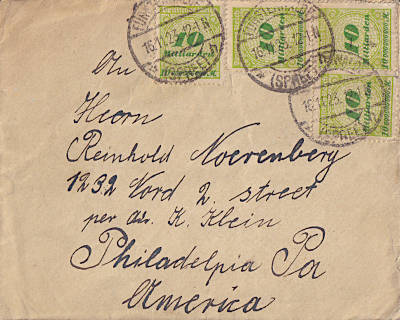 FÜRSTENWALDE
16.11.23. 12-1 N.
(SPREE)
10
Milliarden
10
Milliarden
10
10
Milliarden
An
Herrn
Reinhold Noerenberg
1232 Nord 2. street
per adr. K. Klein
Philadelpia Pa
America